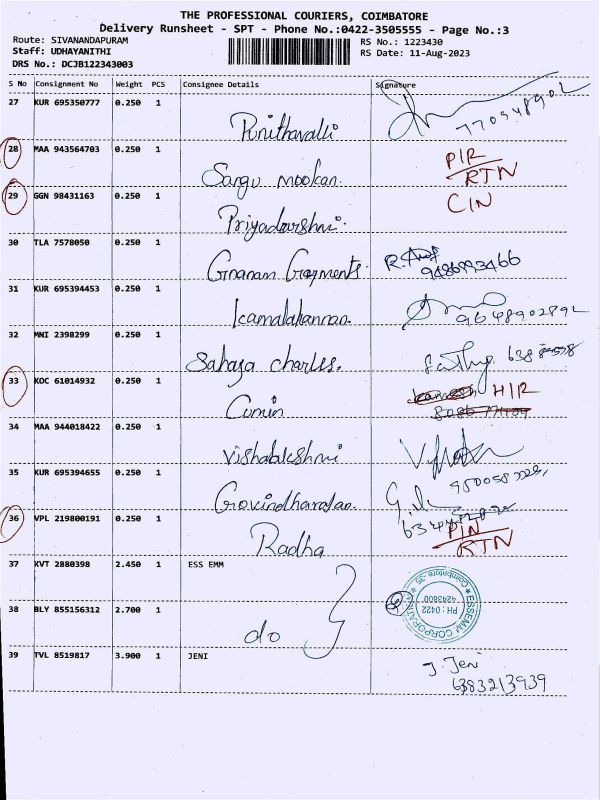 THE PROFESSIONAL COURIERS, COIMBATORE
Delivery Runsheet - SPT - Phone No.:0422-3505555 - Page No.:3
Route: SIVANANDAPURAM
Staff: UDHAYANITHI
DRS No.: DCJB122343003
RS No.: 1223430
RS Date: 11-Aug-2023
S No Consignment No Weight PCS Consignee Details Signature
27 KUR 695350777 0.250 1
Punithavalli
28 MAA 943564703 0.250 1 PIR
Sargu mookan. RTN
29 GGN 98431163 0.250 1 CIN
Priyadarshni.
30 TLA 7578050 0.250 1
Gnanam Garments. 9486993466
31 KUR 695394453 0.250 1
Kamalakannan. 9648902892
32 MNI 2398299 0.250 1
Sahaya charles.
33 KOC 61014932 0.250 1 HIR
Cumin
34 MAA 944018422 0.250 1
Vishalakshmi
35 KUR 695394655 0.250 1
Govindharajan.
36 VPL 219800191 0.250 1 PIN
Radha RTN
37 KVT 2880398 2.450 1 ESS EMM
ESSEMM CORPORATION
Coimbatore - 35.
PH : 0422
4243800
38 BLY 855156312 2.700 1
do
39 TVL 8519817 3.900 1 JENI
J. Jeni
6383213939